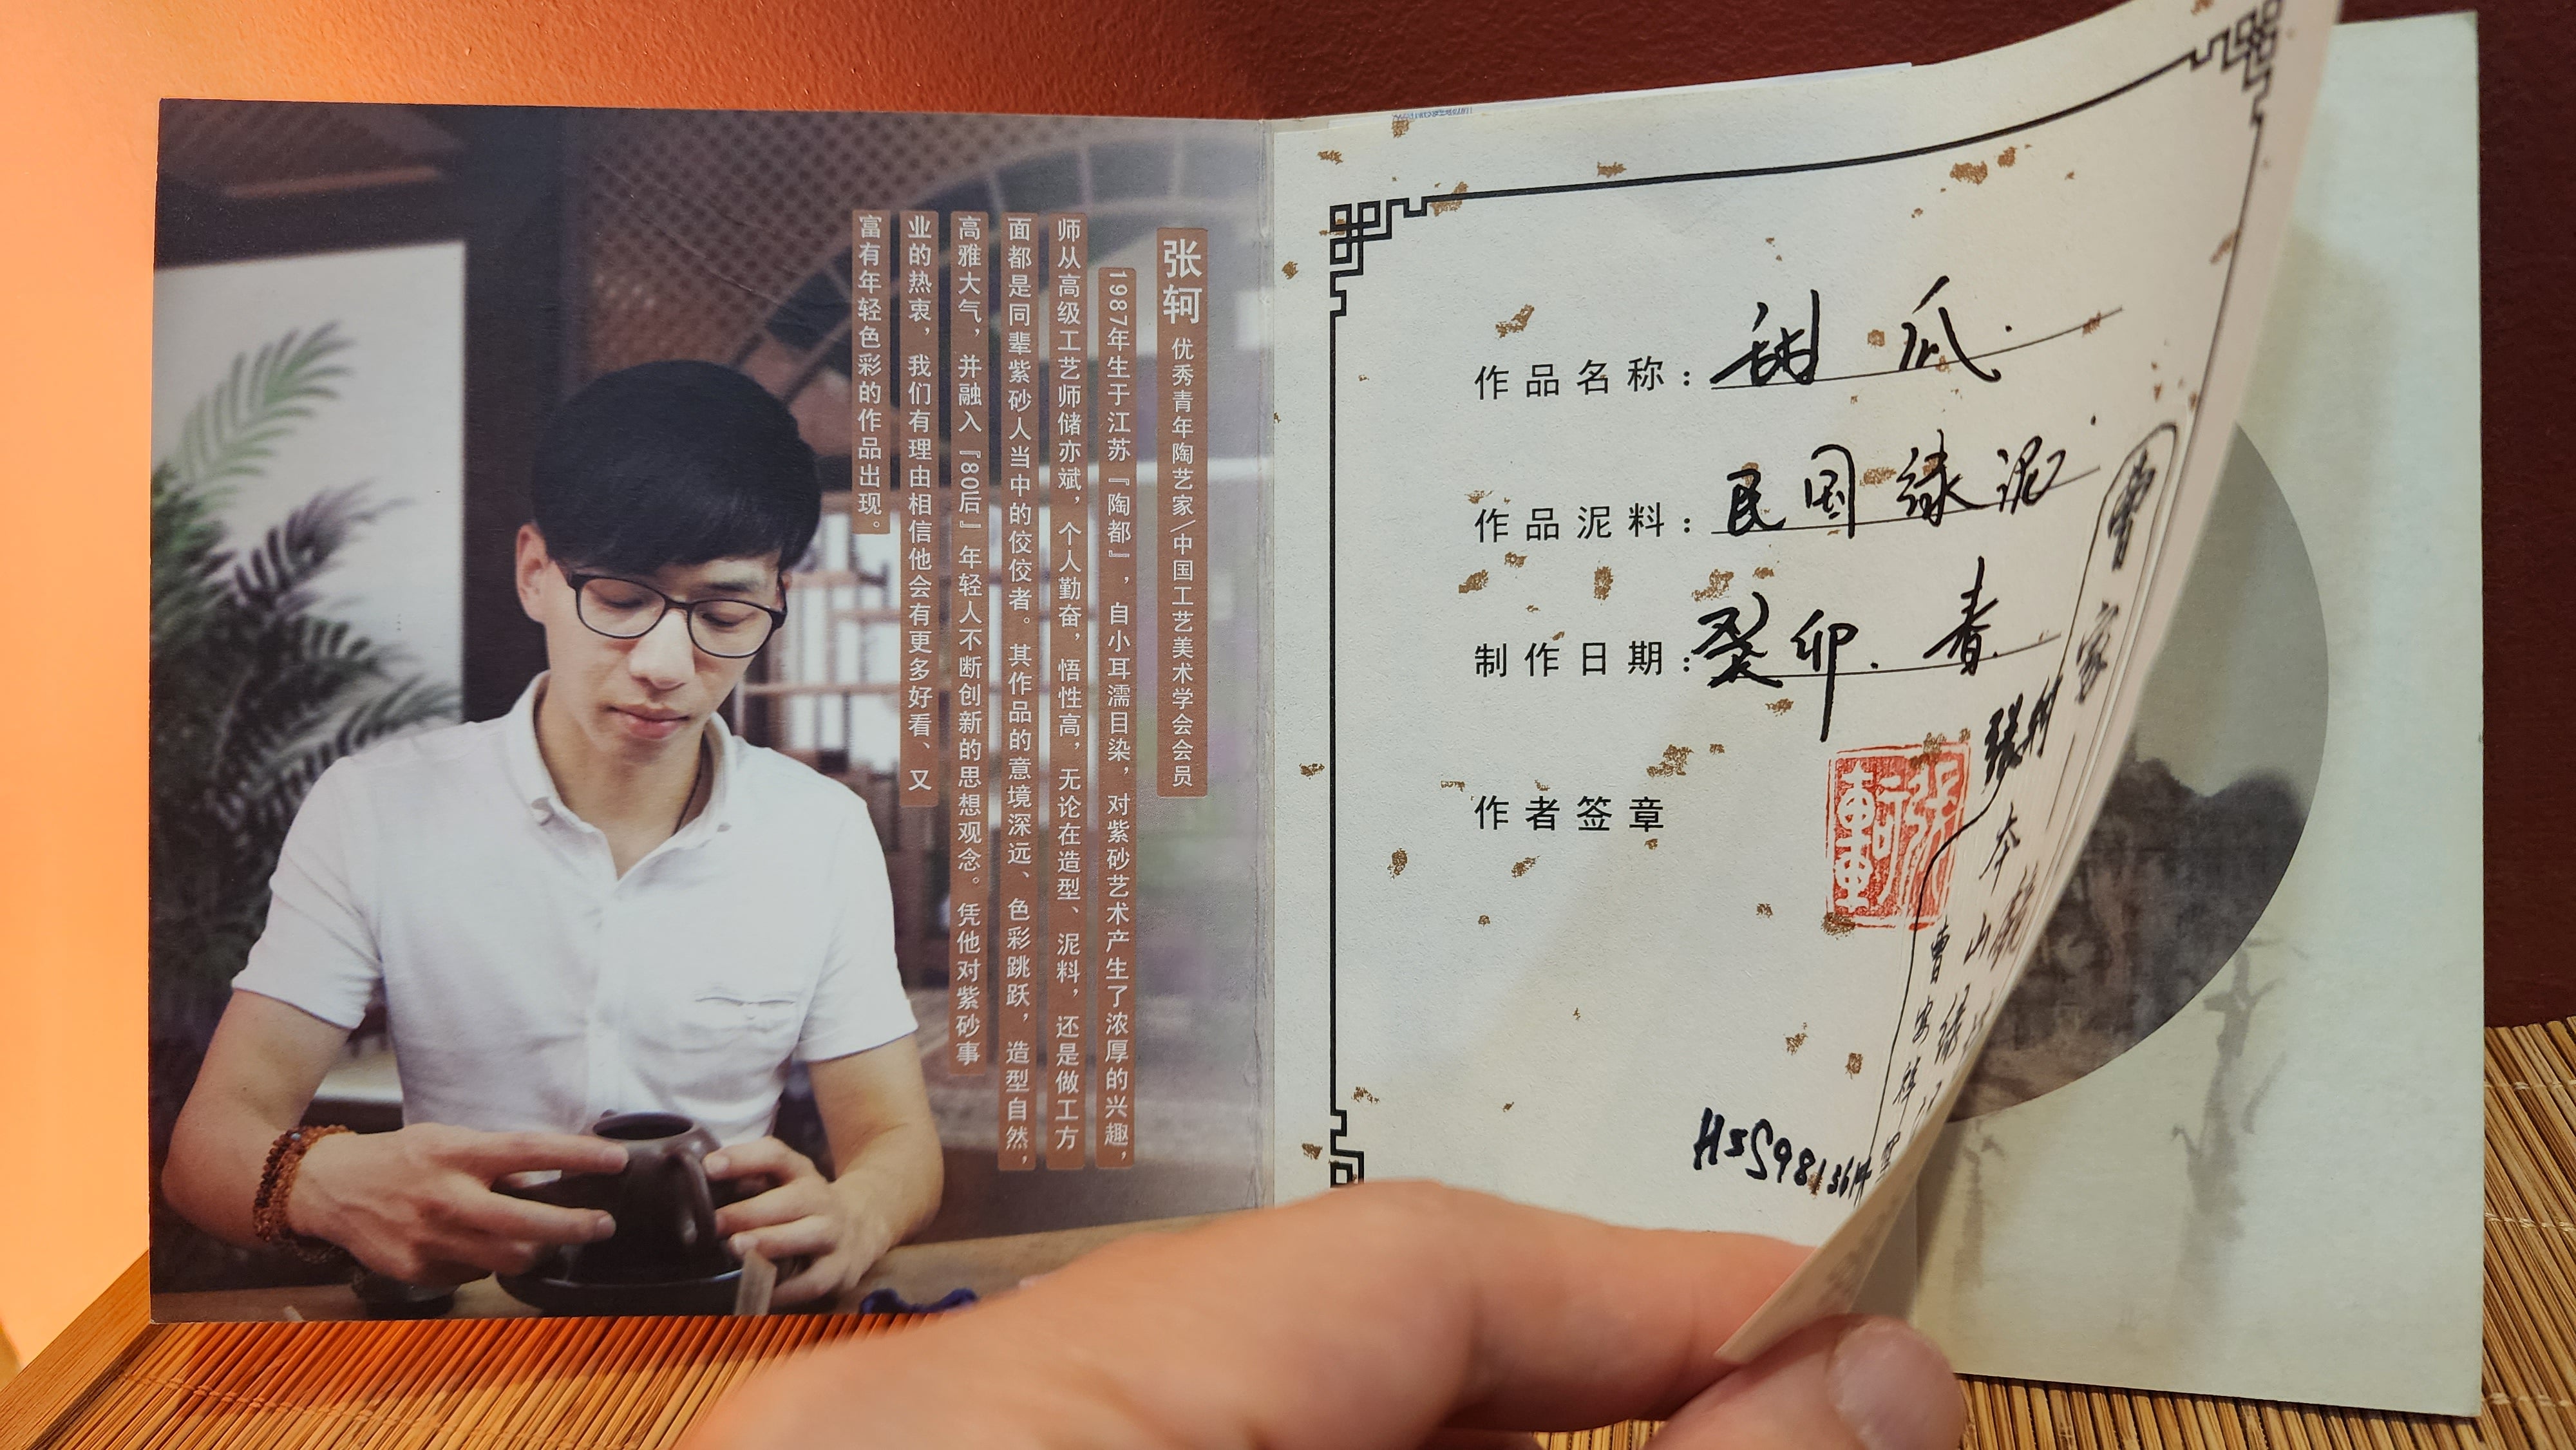 张轲 优秀青年陶艺家/中国工艺美术学会会员
1987年生于江苏『陶都』，自小耳濡目染，对紫砂艺术产生了浓厚的兴趣，
师从高级工艺师储亦斌，个人勤奋，悟性高，无论在造型、泥料，还是做工方
面都是同辈紫砂人当中的佼佼者。其作品的意境深远、色彩跳跃，造型自然，
高雅大气，并融入『80后』年轻人不断创新的思想观念。凭他对紫砂事
业的热衷，我们有理由相信他会有更多好看、又
富有年轻色彩的作品出现。
作品名称：甜瓜
作品泥料：民国绿泥
制作日期：癸卯.春
作者签章
张轲
曹家